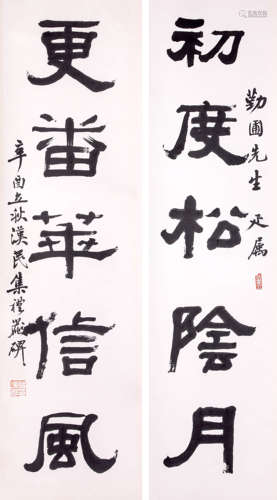 初度松陰月
勤圃先生 疋属
更番華信風
辛酉立秋漢民集禮器碑